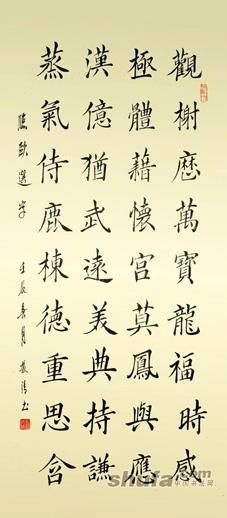 觀榭歷萬寶龍福時感
極體藉懷宮莫鳳與應
漢億猶武遠美典持謙
蒸氣侍鹿棟德重思含
臨歐選字 壬辰春月
shufa.com
中国书法网